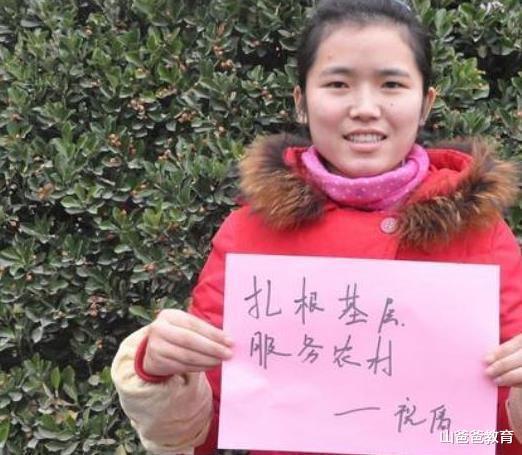 扎根基层
服务农村
山爸爸教育